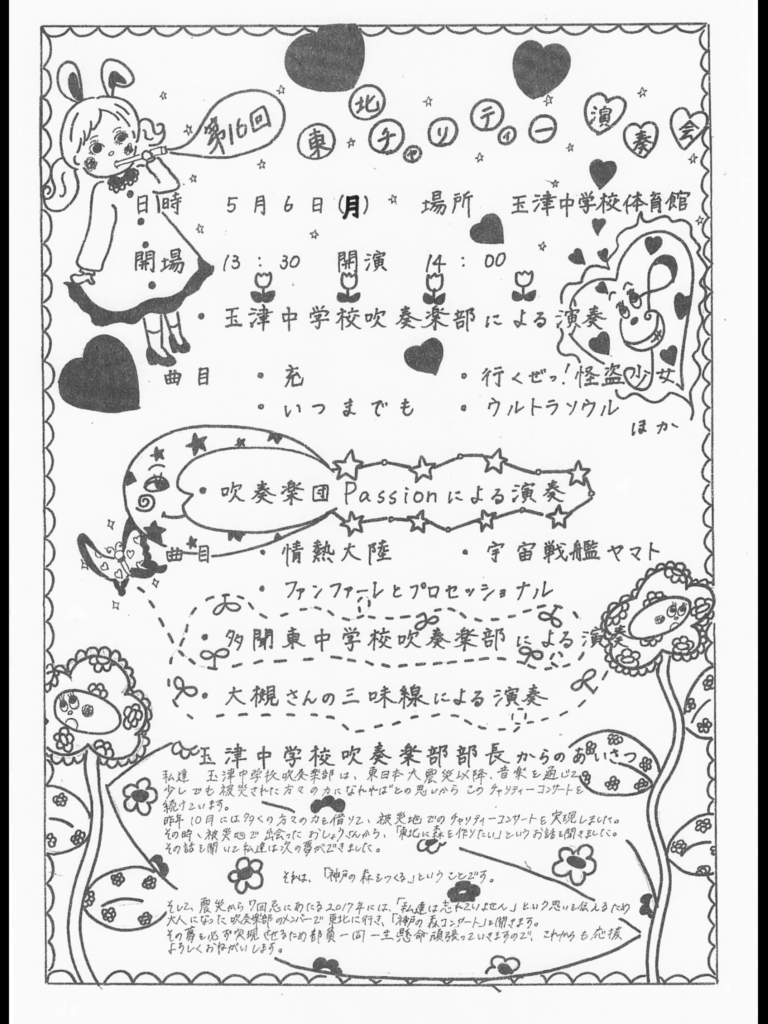 第16回
東北チャリティー演奏会
日時 5月6日(月) 場所 玉津中学校体育館
開場 13:30 開演 14:00
・玉津中学校吹奏楽部による演奏
曲目 ・充 ・行くぜっ!怪盗少女
・いつまでも ・ウルトラソウル
ほか
・吹奏楽団Passionによる演奏
曲目 ・情熱大陸 ・宇宙戦艦ヤマト
・ファンファーレとプロセッショナル
・多聞東中学校吹奏楽部による演奏
・大槻さんの三味線による演奏
玉津中学校吹奏楽部部長からのあいさつ
私達 玉津中学校吹奏楽部は、東日本大震災以降、音楽を通じて
少しでも被災された方々の力になれればとの思いからこのチャリティーコンサートを
続けています。
昨年10月には多くの方々の力を借りて、被災地でのチャリティーコンサートを実現しました。
その時、被災地で出会ったおしょうさんから、「東北に森を作りたい」というお話を聞きました。
その話を聞いて私達は次の夢ができました。
それは、「神戸の森をつくる」ということです。
そして、震災から7回忌にあたる2017年には、「私達は忘れていません」という思いを伝えるため
大人になった吹奏楽部のメンバーで東北に行き、「神戸の森コンサート」を開きます。
その夢を必ず実現させるため部員一同一生懸命頑張っていきますので、これからも応援
よろしくおねがいします。